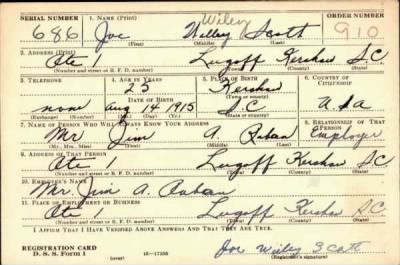 Wiley
SERIAL NUMBER 1. NAME (Print) ORDER NUMBER
686 Joe Willey Scott 910
(First) (Middle) (Last)
2. ADDRESS (Print)
Rte 1 Lugoff Kershaw S.C
(Number and street or R. F. D. number) (Town) (County) (State)
3. TELEPHONE 4. AGE IN YEARS 5. PLACE OF BIRTH 6. COUNTRY OF CITIZENSHIP
25 Kershaw
DATE OF BIRTH (Town or county)
none Aug 14 1915 S.C
(Exchange) (Number) (Mo.) (Day) (Yr.) (State or country)
7. NAME OF PERSON WHO WILL ALWAYS KNOW YOUR ADDRESS 8. RELATIONSHIP OF THAT PERSON
Mr Jim A. Employer
(Mr., Mrs., Miss) (First) (Middle) (Last)
9. ADDRESS OF THAT PERSON
Rte 1 Lugoff Kershaw S.C
(Number and street or R. F. D. number) (Town) (County) (State)
10. EMPLOYER'S NAME
Mr. Jim A.
11. PLACE OF EMPLOYMENT OR BUSINESS
Rte 1 Lugoff Kershaw S.C
(Number and street or R. F. D. number) (Town) (County) (State)
I AFFIRM THAT I HAVE VERIFIED ABOVE ANSWERS AND THAT THEY ARE TRUE.
REGISTRATION CARD
D. S. S. Form 1 (over) 16—17105 Joe Wiley Scott